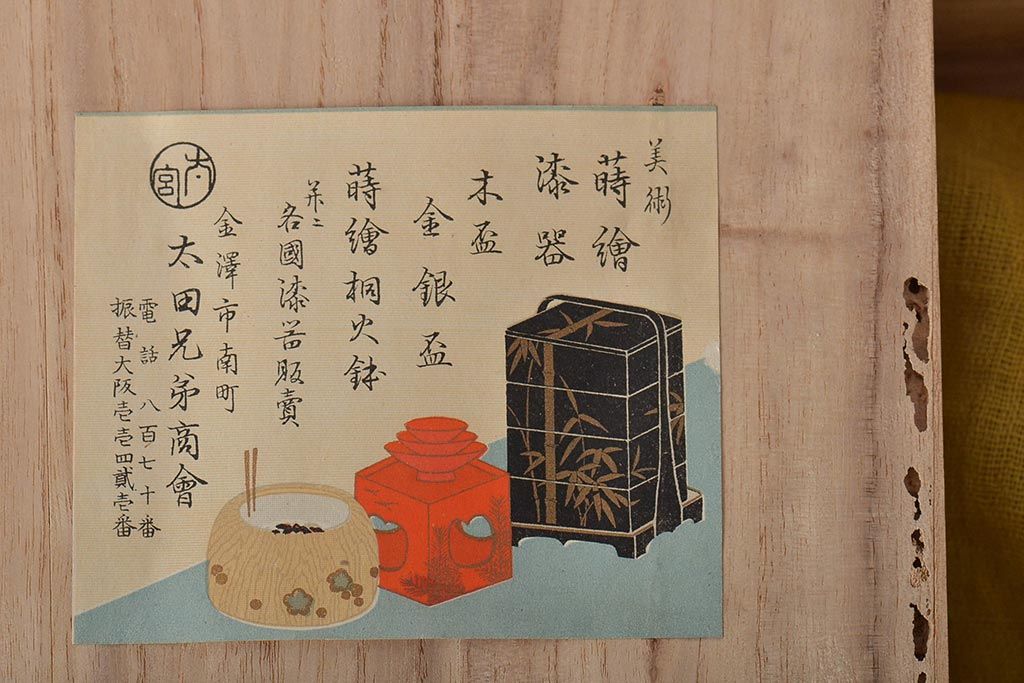 美術
蒔繪
漆器
木盃
金銀盃
蒔繪桐火鉢
并ニ
各國漆器販賣
金澤市南町
太田兄弟商會
電話八百七十番
振替大阪壱壱四貳壱番
大宮